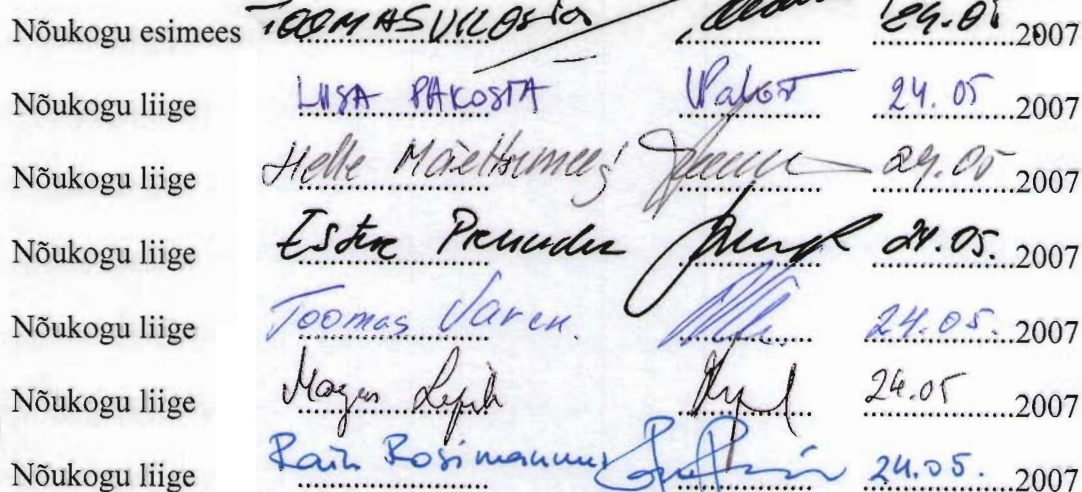 Nõukogu esimees TOOMAS VILOSIUS 24.05 2007
Nõukogu liige LIISA PAKOSTA 24.05 2007
Nõukogu liige Helle 24.05 2007
Nõukogu liige Ester 24.05. 2007
Nõukogu liige Toomas Varek. 24.05. 2007
Nõukogu liige Margus Lepik 24.05 2007
Nõukogu liige Rain Rosimannus 24.05. 2007